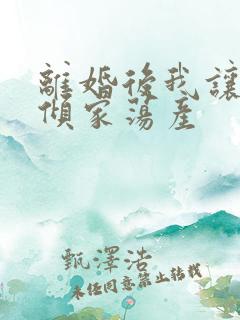 離婚後我讓
傾家蕩產
甄澤浩
未经同意禁止转载